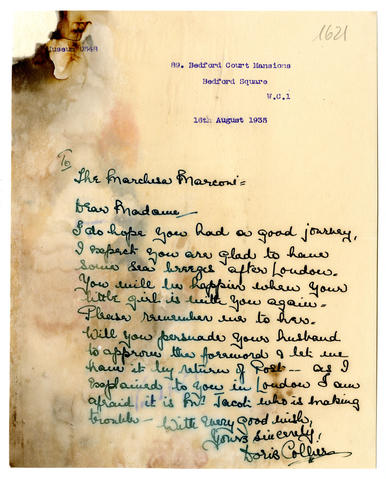 1621
Museum 0548
89. Bedford Court Mansions
Bedford Square
W.C.1
16th August 1935
To
The Marchesa Marconi =
Dear Madame
I do hope you had a good journey,
I expect you are glad to have
some sea breezes after London.
You will be happier when your
little girl is with you again -
Please remember me to her.
Will you persuade your husband
to approve the foreword & let me
have it by return of Post - as I
explained to you in London I am
afraid it is Mr. Jacot who is making
trouble - With every good wish,
Yours sincerely,
Doris Collier